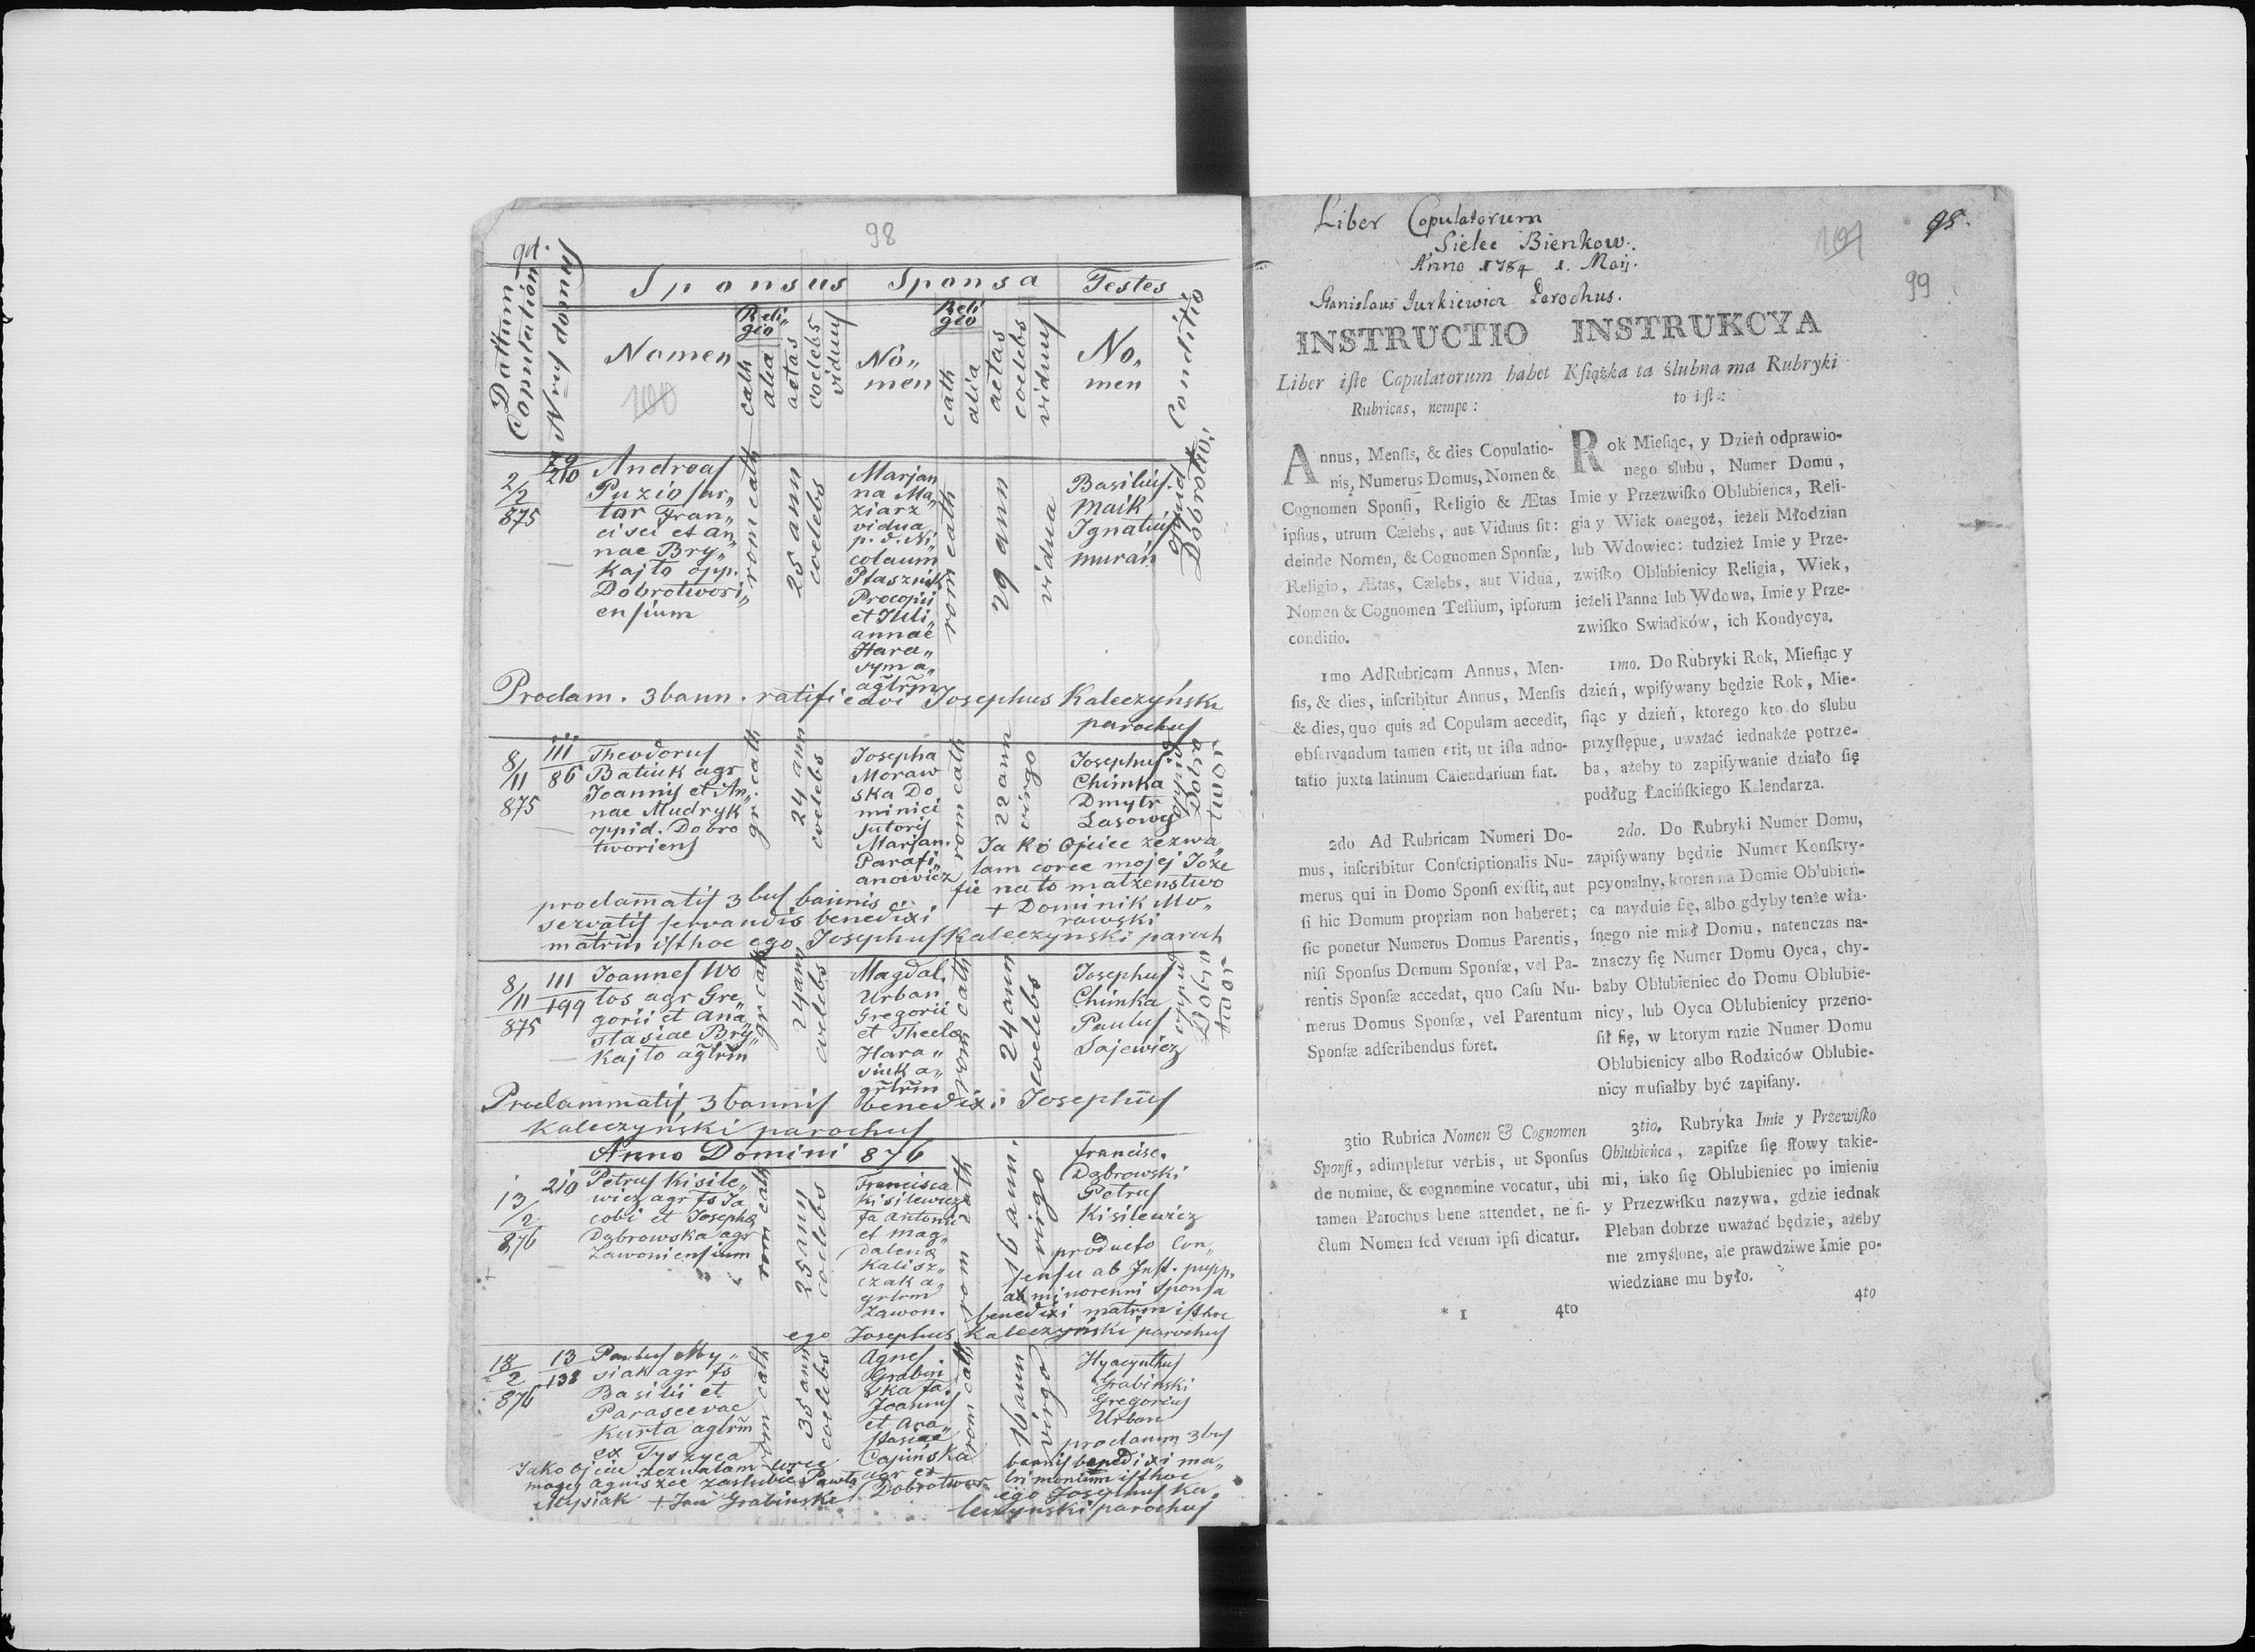 98
94.
Dattum Copulationis
Nrus domus
Sponsus
Sponsa
Testes
Conditio
Nomen
Religio
cath
alia
aetas
coelebs
viduus
No„
men
Religio
cath
alia
aetas
coelebs
viduus
No„
men
100
2/2
875
79
210
Andreas
Puzio sar„
tor Fran„
cisci et An„
nae Bry„
kajło opp.
Dobrotwori„
ensium
rom cath
25 ann
coelebs
Marjan
na Ma„
ziarz
vidua
p. d. Ni„
colaum
Ptasznik
Procopii
et Juli„
annae
Hara„
syma„
agrlrm
rom cath
29 ann
vidua
Basilius
Maik
Ignatius
Muran
Proclam. 3 bann. ratificavi Josephus Kaleczyński
parochus
8/11
875
111
86
Theodorus
Batiuk agr
Joannis et An„
nae Mudryk
oppid. Dobro
tworiens
gr cath
24 ann
coelebs
Josepha
Moraw
ska Do
minici
sutoris
Marjan.
Parafi„
anowicz
rom cath
22 ann
virgo
Josephus
Chimka
Dmytr
Lasowy
Jako Ojciec zezwa„
lam corce mojej Joze
fie na to małżenstwo
+ Dominik Mo„
rawski
proclamatis 3bus bannis
servatis servandis benedixi
matrm isthoc ego Josephus Kaleczynski paroch
8/11
875
111
199
Joannes Wo
tos agr Gre„
gorii et Ana„
stasiae Bry„
kajło agrlrm
gr cath
24 ann
coelebs
Magdal.
Urban
Gregorii
et Theclae
Hara„
siuk a„
grlrm
rom cath
24 ann
coelebs
Josephus
Chimka
Paulus
Sajewicz
Proclammatis 3 bannis benedixi Josephus
Kaleczyński parochus
Anno Domini 876
13/2
876
210
Petrus Kisile„
wicz agr fs Ja
cobi et Josephae
Dąbrowska agr
Zawoniensium
rom cath
25 ann
coelebs
Francisca
Kisilewicz
fa Antonii
et Mag„
dalenae
Kalisz„
czak a„
grlrm
Zawon.
rom cath
16 ann.
virgo
Francisc.
Dąbrowski
Petrus
Kisilewicz
producto Con„
sensu ab Inst. pupp.
ab minorenni sponsa
benedixi matrm isthoc
ego Josephus Kaleczyński parochus
18/2
876
13
138
Paulus My„
siak agr fs
Basilii et
Parascevae
Kurta agrlrm
ex Tyszyca
rom cath
35 ann
coelebs
Agnes
Grabin
ska fa
Joannis
et Ana„
stasiae
Capińska
agr ex
Dobrotwor
rom cath
16 ann
virgo
Hyacynthus
Grabinski
Gregorius
Urban
proclamm 3bus
bannis benedixi ma„
trimonium isthoc
ego Josephus Ka„
leczynski parochus
Jako Ojciec zezwalam corce
mojej Agniszce zaslubić Pawła
Mysiak + Jan Grabinski
Liber Copulatorum
Sielec Bienkow.
Anno 1784 1. Maij.
Stanislaus Jurkiewicz Parochus.
101
95.
99
INSTRUCTIO
Liber iſte Copulatorum habet
Rubricas, nempe:
Annus, Menſis, & dies Copulatio-
nis, Numerus Domus, Nomen &
Cognomen Sponſi, Religio & Ætas
ipſius, utrum Cælebs, aut Viduus ſit:
deinde Nomen, & Cognomen Sponſæ,
Religio, Ætas, Cælebs, aut Vidua,
Nomen & Cognomen Teſtium, ipſorum
conditio.
1mo AdRubricam Annus, Men-
ſis, & dies, inſcribitur Annus, Menſis
& dies, quo quis ad Copulam accedit,
obſervandum tamen erit, ut iſta adno-
tatio juxta latinum Calendarium fiat.
2do Ad Rubricam Numeri Do-
mus, inſcribitur Conſcriptionalis Nu-
merus qui in Domo Sponſi exiſtit, aut
ſi hic Domum propriam non haberet;
ſic ponetur Numerus Domus Parentis,
niſi Sponſus Domum Sponſæ, vel Pa-
rentis Sponſæ accedat, quo Caſu Nu-
merus Domus Sponſæ, vel Parentum
Sponſæ adſcribendus foret.
3tio Rubrica Nomen & Cognomen
Sponſi, adimpletur verbis, ut Sponſus
de nomine, & cognomine vocatur, ubi
tamen Parochus bene attendet, ne fi-
ctum Nomen ſed verum ipſi dicatur.
* 1
4to
INSTRUKCYA
Kſiążka ta ślubna ma Rubryki
to ieſt:
Rok Mieſiąc, y Dzień odprawio-
nego ślubu, Numer Domu,
Imie y Przezwiſko Oblubieńca, Reli-
gia y Wiek onegoż, ieżeli Młodzian
lub Wdowiec: tudzież Imie y Prze-
zwiſko Oblubienicy Religia, Wiek,
ieżeli Panna lub Wdowa, Imie y Prze-
zwiſko Swiadków, ich Kondycya.
1mo. Do Rubryki Rok, Mieſiąc y
dzień, wpiſywany będzie Rok, Mie-
ſiąc y dzień, ktorego kto do ślubu
przyſtępue, uważać iednakże potrze-
ba, ażeby to zapiſywanie działo ſię
podług Łacińſkiego Kalendarza.
2do. Do Rubryki Numer Domu,
zapiſywany będzie Numer Konſkry-
pcyonalny, ktoren na Domie Oblubień-
ca nayduie ſię, albo gdyby tenże wła-
ſnego nie miał Domu, natenczas na-
znaczy ſię Numer Domu Oyca, chy-
baby Oblubieniec do Domu Oblubie-
nicy, lub Oyca Oblubienicy przeno-
ſił ſię, w ktorym razie Numer Domu
Oblubienicy albo Rodziców Oblubie-
nicy muſiałby być zapiſany.
3tio. Rubryka Imie y Przewiſko
Oblubieńca, zapiſze ſię ſłowy takie-
mi, iako ſię Oblubieniec po imieniu
y Przezwiſku nazywa, gdzie iednak
Pleban dobrze uważać będzie, ażeby
nie zmyślone, ale prawdziwe Imie po-
wiedziane mu było.
4to